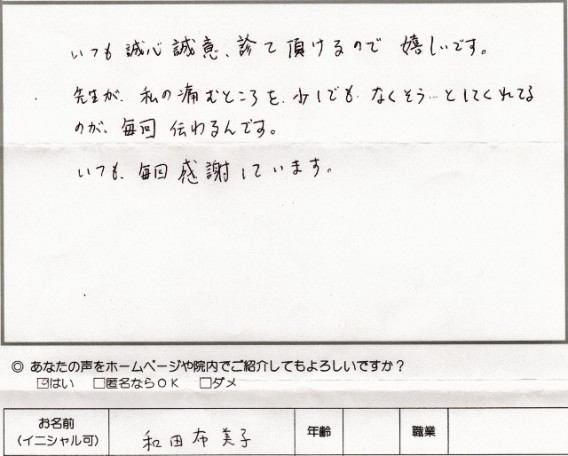 いつも誠心誠意、診て頂けるので嬉しいです。
先生が、私の痛むところを、少しでも、なくそう…としてくれてる
のが、毎回伝わるんです。
いつも、毎回感謝しています。
◎ あなたの声をホームページや院内でご紹介してもよろしいですか？
☑はい □匿名ならOK □ダメ
お名前
（イニシャル可） 和田布美子 年齢 職業